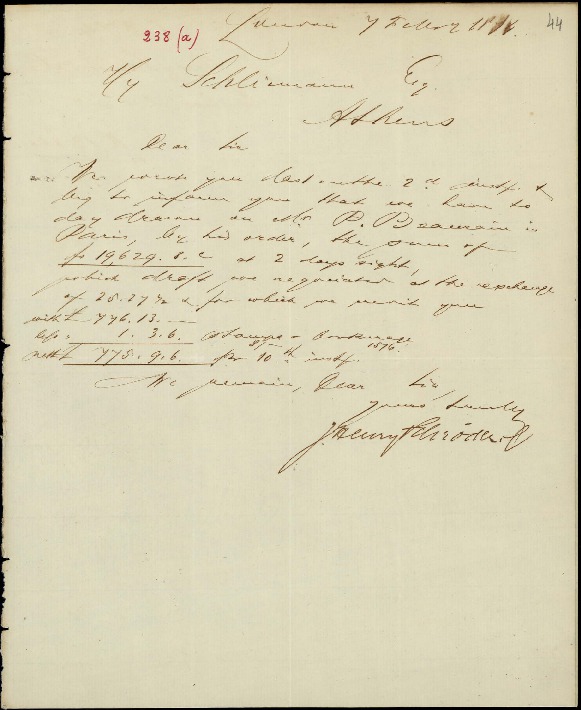 44
238 (a)
London 7 Febry
Hy Schliemann Esq.
Athens
Dear Sir
We wrote you last on the 2d inst. &
beg to inform you that we have to
day drawn on Mr P. Beaurain in
Paris, by his order, the sum of
fs 19,629. 8. c at 2 days sight,
which draft we negociated at the exchange
of 25.27½ & for which we credit you
with £ 776.13.—
less " 1. 3. 6. stamps & brokerage
8/— 15/6.
nett £ 775. 9. 6. pr 10th inst.
We remain, Dear Sir,
yours truly
J Henry Schröder & C